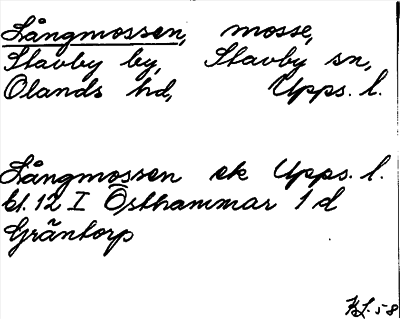 Långmossen, mosse,
Stavby by, Stavby sn,
Olands hd, Upps. l.
Långmossen ek Upps. l.
bl. 12 I Östhammar 1 d
Gräntorp
KL. 58